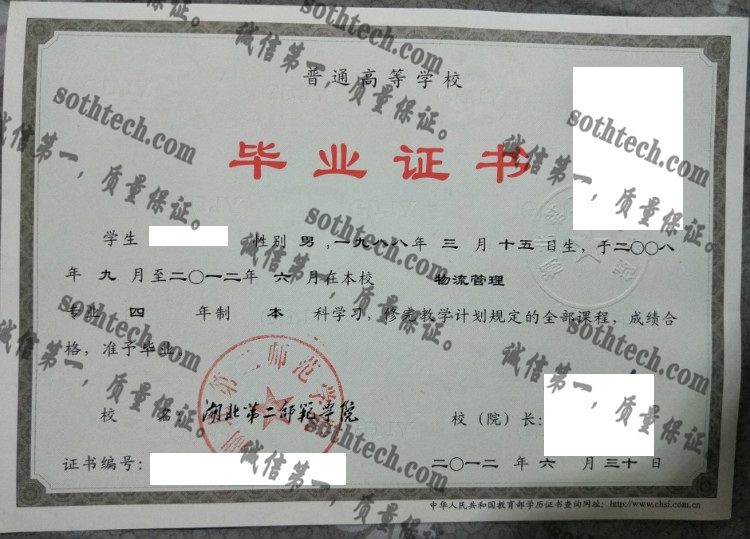 普通高等学校
毕业证书
学生 性别 男，一九八八年 三 月 十五日生，于二〇〇八
年 九 月至二〇一二年 六 月在本校 物流管理
专业 四 年制 本 科学习，修完教学计划规定的全部课程，成绩合
格，准予毕业。
校 名：湖北第二师范学院
校（院）长：
证书编号：
二〇一二 年 六 月 三十 日
中华人民共和国教育部学历证书查询网址：http://www.chsi.com.cn
第二师范学院
sothtech.com
诚信第一，质量保证。
sothtech.com
诚信第一，质量保证。
sothtech.com
诚信第一，质量保证。
sothtech.com
诚信第一，质量保证。
sothtech.com
诚信第一，质量保证。
sothtech.com
诚信第一，质量保证。
sothtech.com
诚信第一，质量保证。